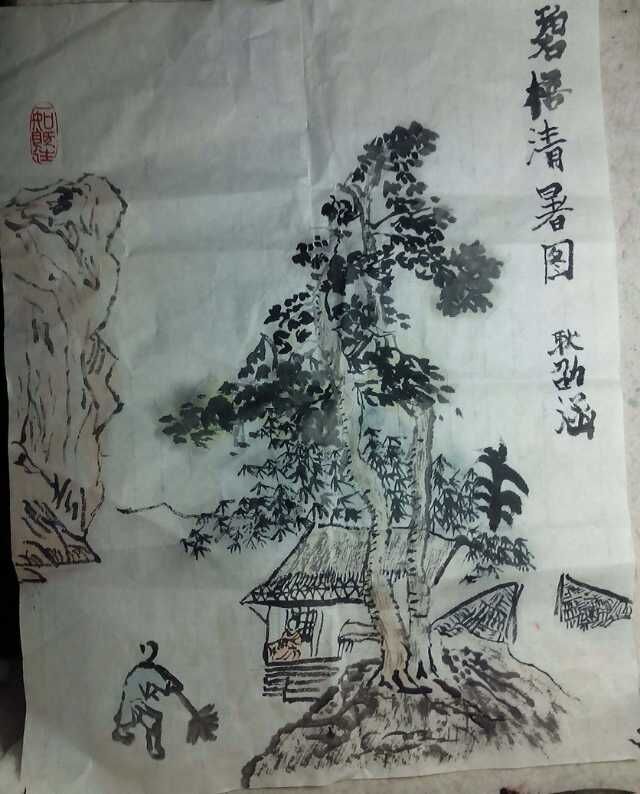 碧梧清暑图
耿劭涵